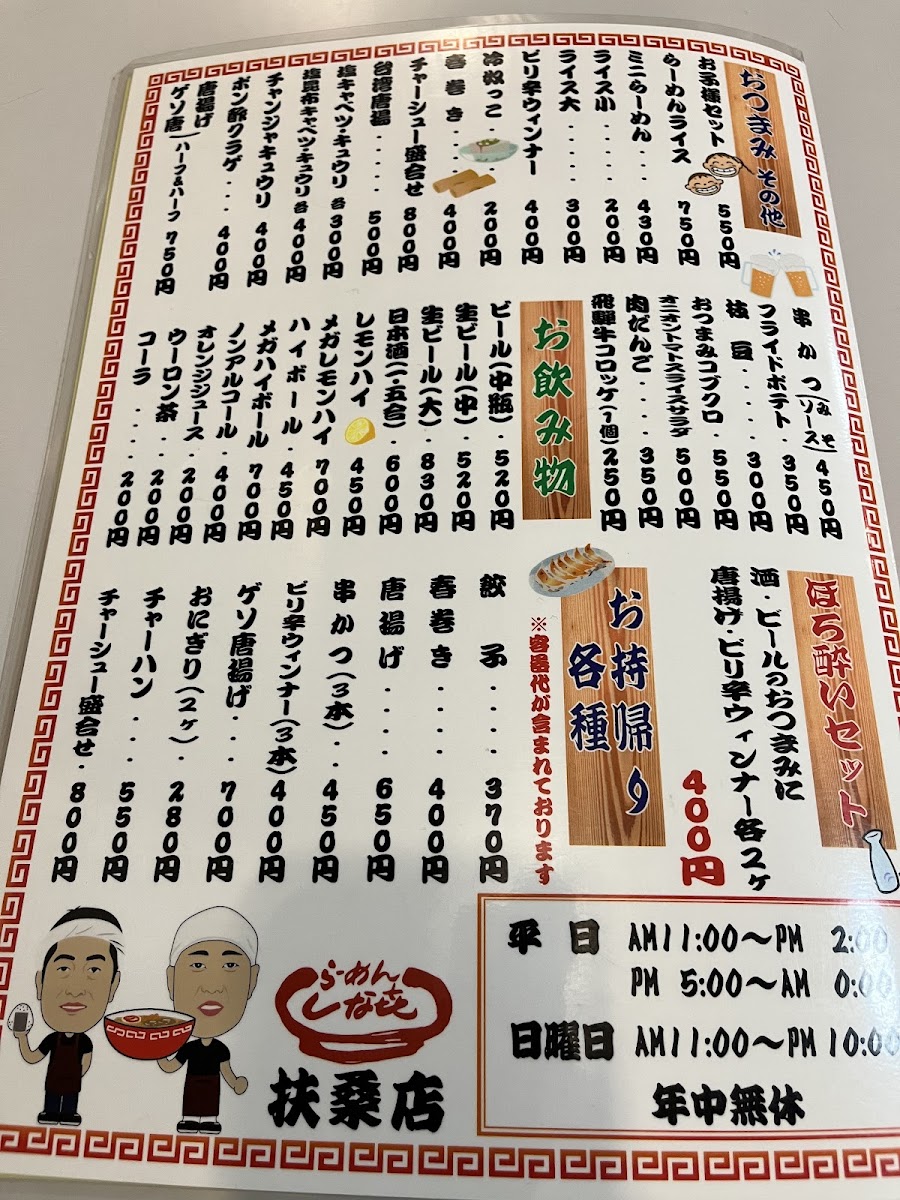 おつまみ その他
お子様セット 550円
らーめんライス 750円
ミニらーめん・・・ 430円
ライス小・・・・ 200円
ライス大・・・・ 300円
ピリ辛ウィンナー 400円
冷奴っこ・・・ 200円
春巻き・・・ 400円
チャーシュー盛合せ 800円
台湾唐揚・・・・ 500円
塩キャベツ・キュウリ各 300円
塩昆布キャベツ・キュウリ各 400円
チャンジャキュウリ 400円
ポン酢クラゲ・・・ 400円
唐揚げ
ゲソ唐 ハーフ&ハーフ 750円
串かつ(みそ ソース) 450円
フライドポテト 350円
枝豆・・・・ 300円
おつまみコブクロ・ 550円
オニオントマトスライスサラダ 500円
肉だんご・・・・ 350円
飛騨牛コロッケ(1個) 250円
お飲み物
ビール(中瓶)・ 520円
生ビール(中)・ 520円
生ビール(大)・ 830円
日本酒(一・五合)・ 600円
レモンハイ 450円
メガレモンハイ 700円
ハイボール・ 450円
メガハイボール 700円
ノンアルコール 400円
オレンジジュース・ 200円
ウーロン茶・・ 200円
コーラ・・・・ 200円
ほろ酔いセット
酒・ビールのおつまみに
唐揚げ・ピリ辛ウィンナー各2ヶ
400円
お持帰り各種
※容器代が含まれております
餃子・・・・ 370円
春巻き・・・・ 400円
唐揚げ・・・・ 650円
串かつ(3本)・・ 450円
ピリ辛ウィンナー(3本) 400円
ゲソ唐揚げ・・・ 700円
おにぎり(2ヶ)・・ 280円
チャーハン・・・ 550円
チャーシュー盛合せ・ 800円
平日 AM11:00〜PM 2:00
PM 5:00〜AM 0:00
日曜日 AM11:00〜PM10:00
年中無休
らーめん
しな㐂
扶桑店